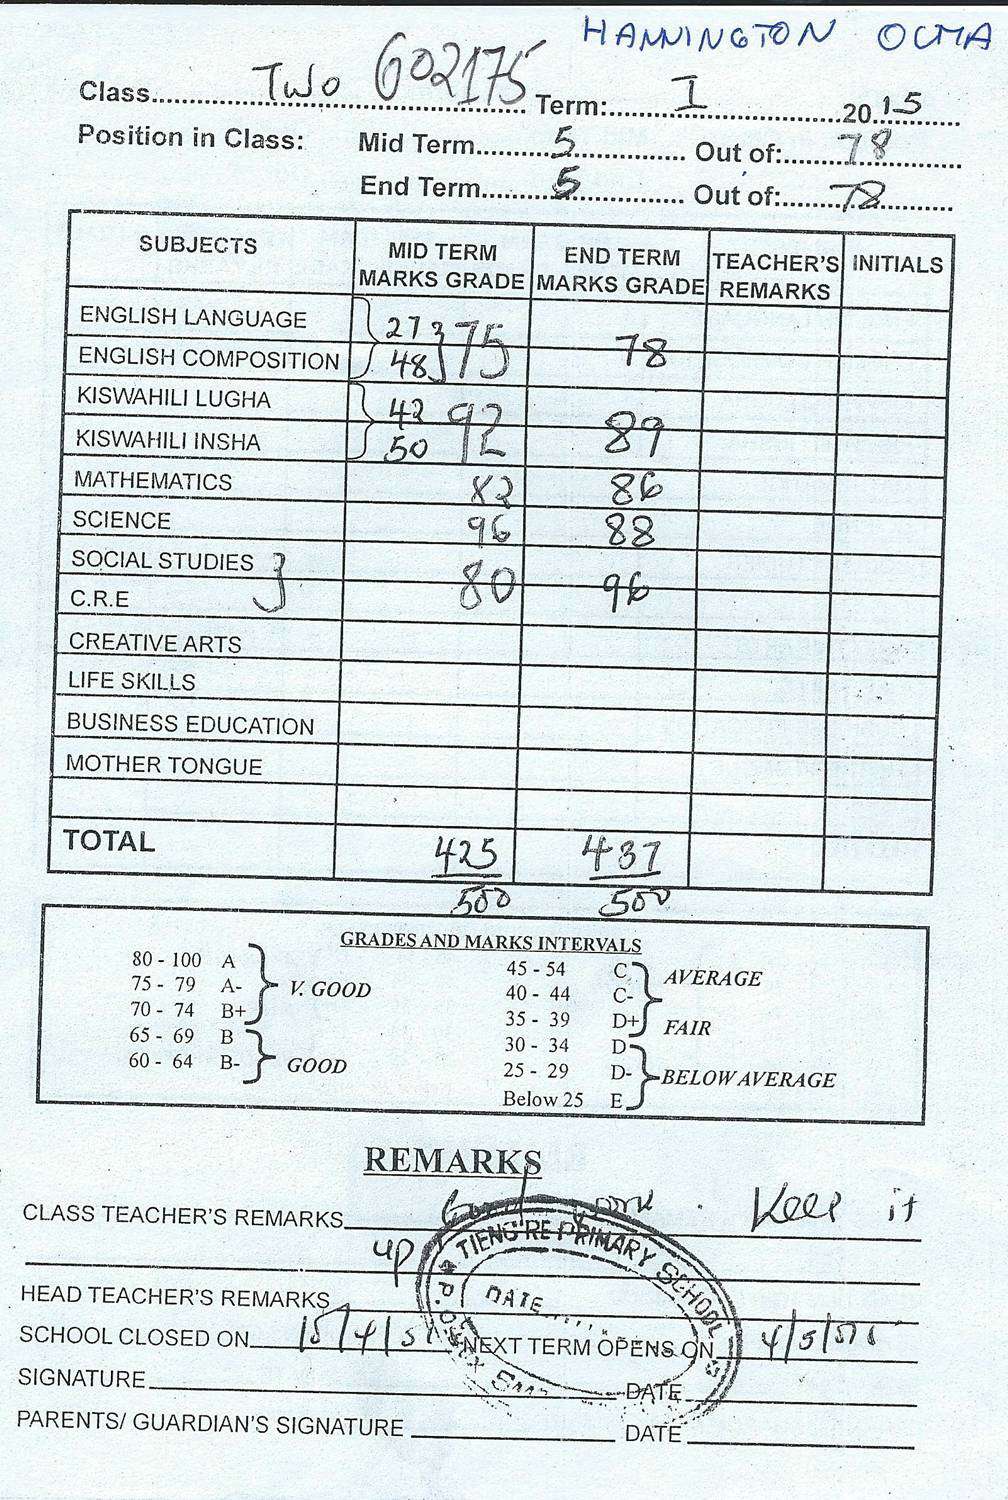 HANNINGTON OCMA
Class Two 602175 Term: I 2015
Position in Class: Mid Term 5 Out of: 78
End Term 5 Out of: 78
SUBJECTS MID TERM MARKS GRADE END TERM MARKS GRADE TEACHER'S REMARKS INITIALS
ENGLISH LANGUAGE 27 75 78
ENGLISH COMPOSITION 48
KISWAHILI LUGHA 42 92 89
KISWAHILI INSHA 50
MATHEMATICS 82 86
SCIENCE 96 88
SOCIAL STUDIES 80 96
C.R.E
CREATIVE ARTS
LIFE SKILLS
BUSINESS EDUCATION
MOTHER TONGUE
TOTAL 425 437
500 500
GRADES AND MARKS INTERVALS
80 - 100 A
75 - 79 A- V. GOOD
70 - 74 B+
65 - 69 B
60 - 64 B- GOOD
45 - 54 C AVERAGE
40 - 44 C-
35 - 39 D+ FAIR
30 - 34 D
25 - 29 D- BELOW AVERAGE
Below 25 E
REMARKS
CLASS TEACHER'S REMARKS Good work. Keep it
up
HEAD TEACHER'S REMARKS
SCHOOL CLOSED ON NEXT TERM OPENS ON
SIGNATURE DATE
PARENTS/ GUARDIAN'S SIGNATURE DATE
TIENG'RE PRIMARY SCHOOL
DATE